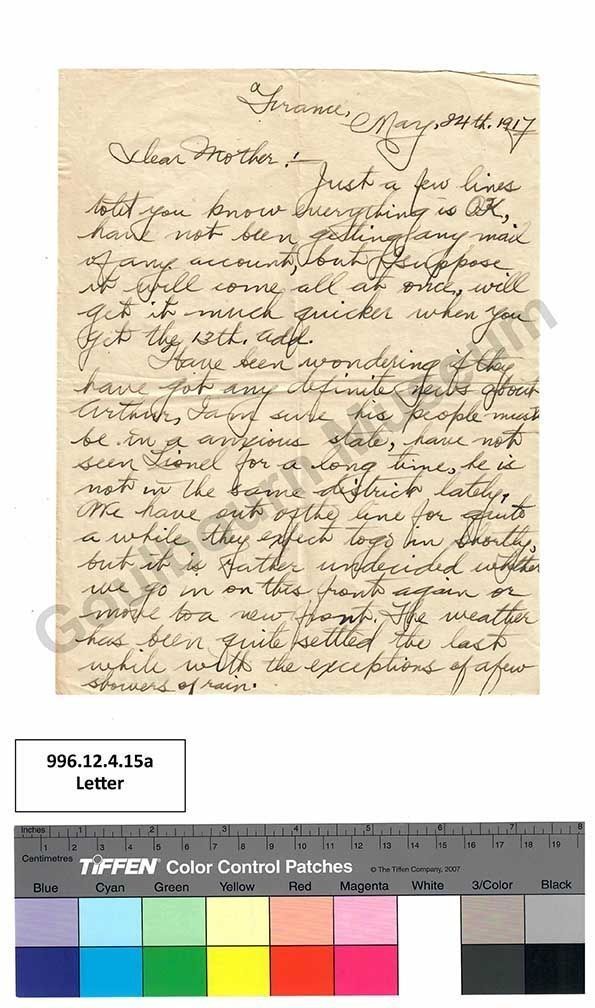 France,
May, 24th. 1917
Dear Mother :-
Just a few lines
to let you know everything is OK,
have not been getting any mail
of any account, but I suppose
it will come all at once, will
get it much quicker when you
get the 13th. add.
Have been wondering if they
have got any definite news about
Arthur, I am sure his people must
be in a anxious state, have not
seen Lionel for a long time, he is
not in the same district lately.
We have out of the line for quite
a while, they expect to go in shortly,
but it is rather undecided whether
we go in on this front again or
move to a new front. The weather
has been quite settled the last
while with the exceptions of a few
showers of rain.
Goulbourn Museum
996.12.4.15a
Letter
Inches 1 2 3 4 5 6 7 8
Centimetres 1 2 3 4 5 6 7 8 9 10 11 12 13 14 15 16 17 18 19
TIFFEN Color Control Patches © The Tiffen Company, 2007
Blue Cyan Green Yellow Red Magenta White 3/Color Black